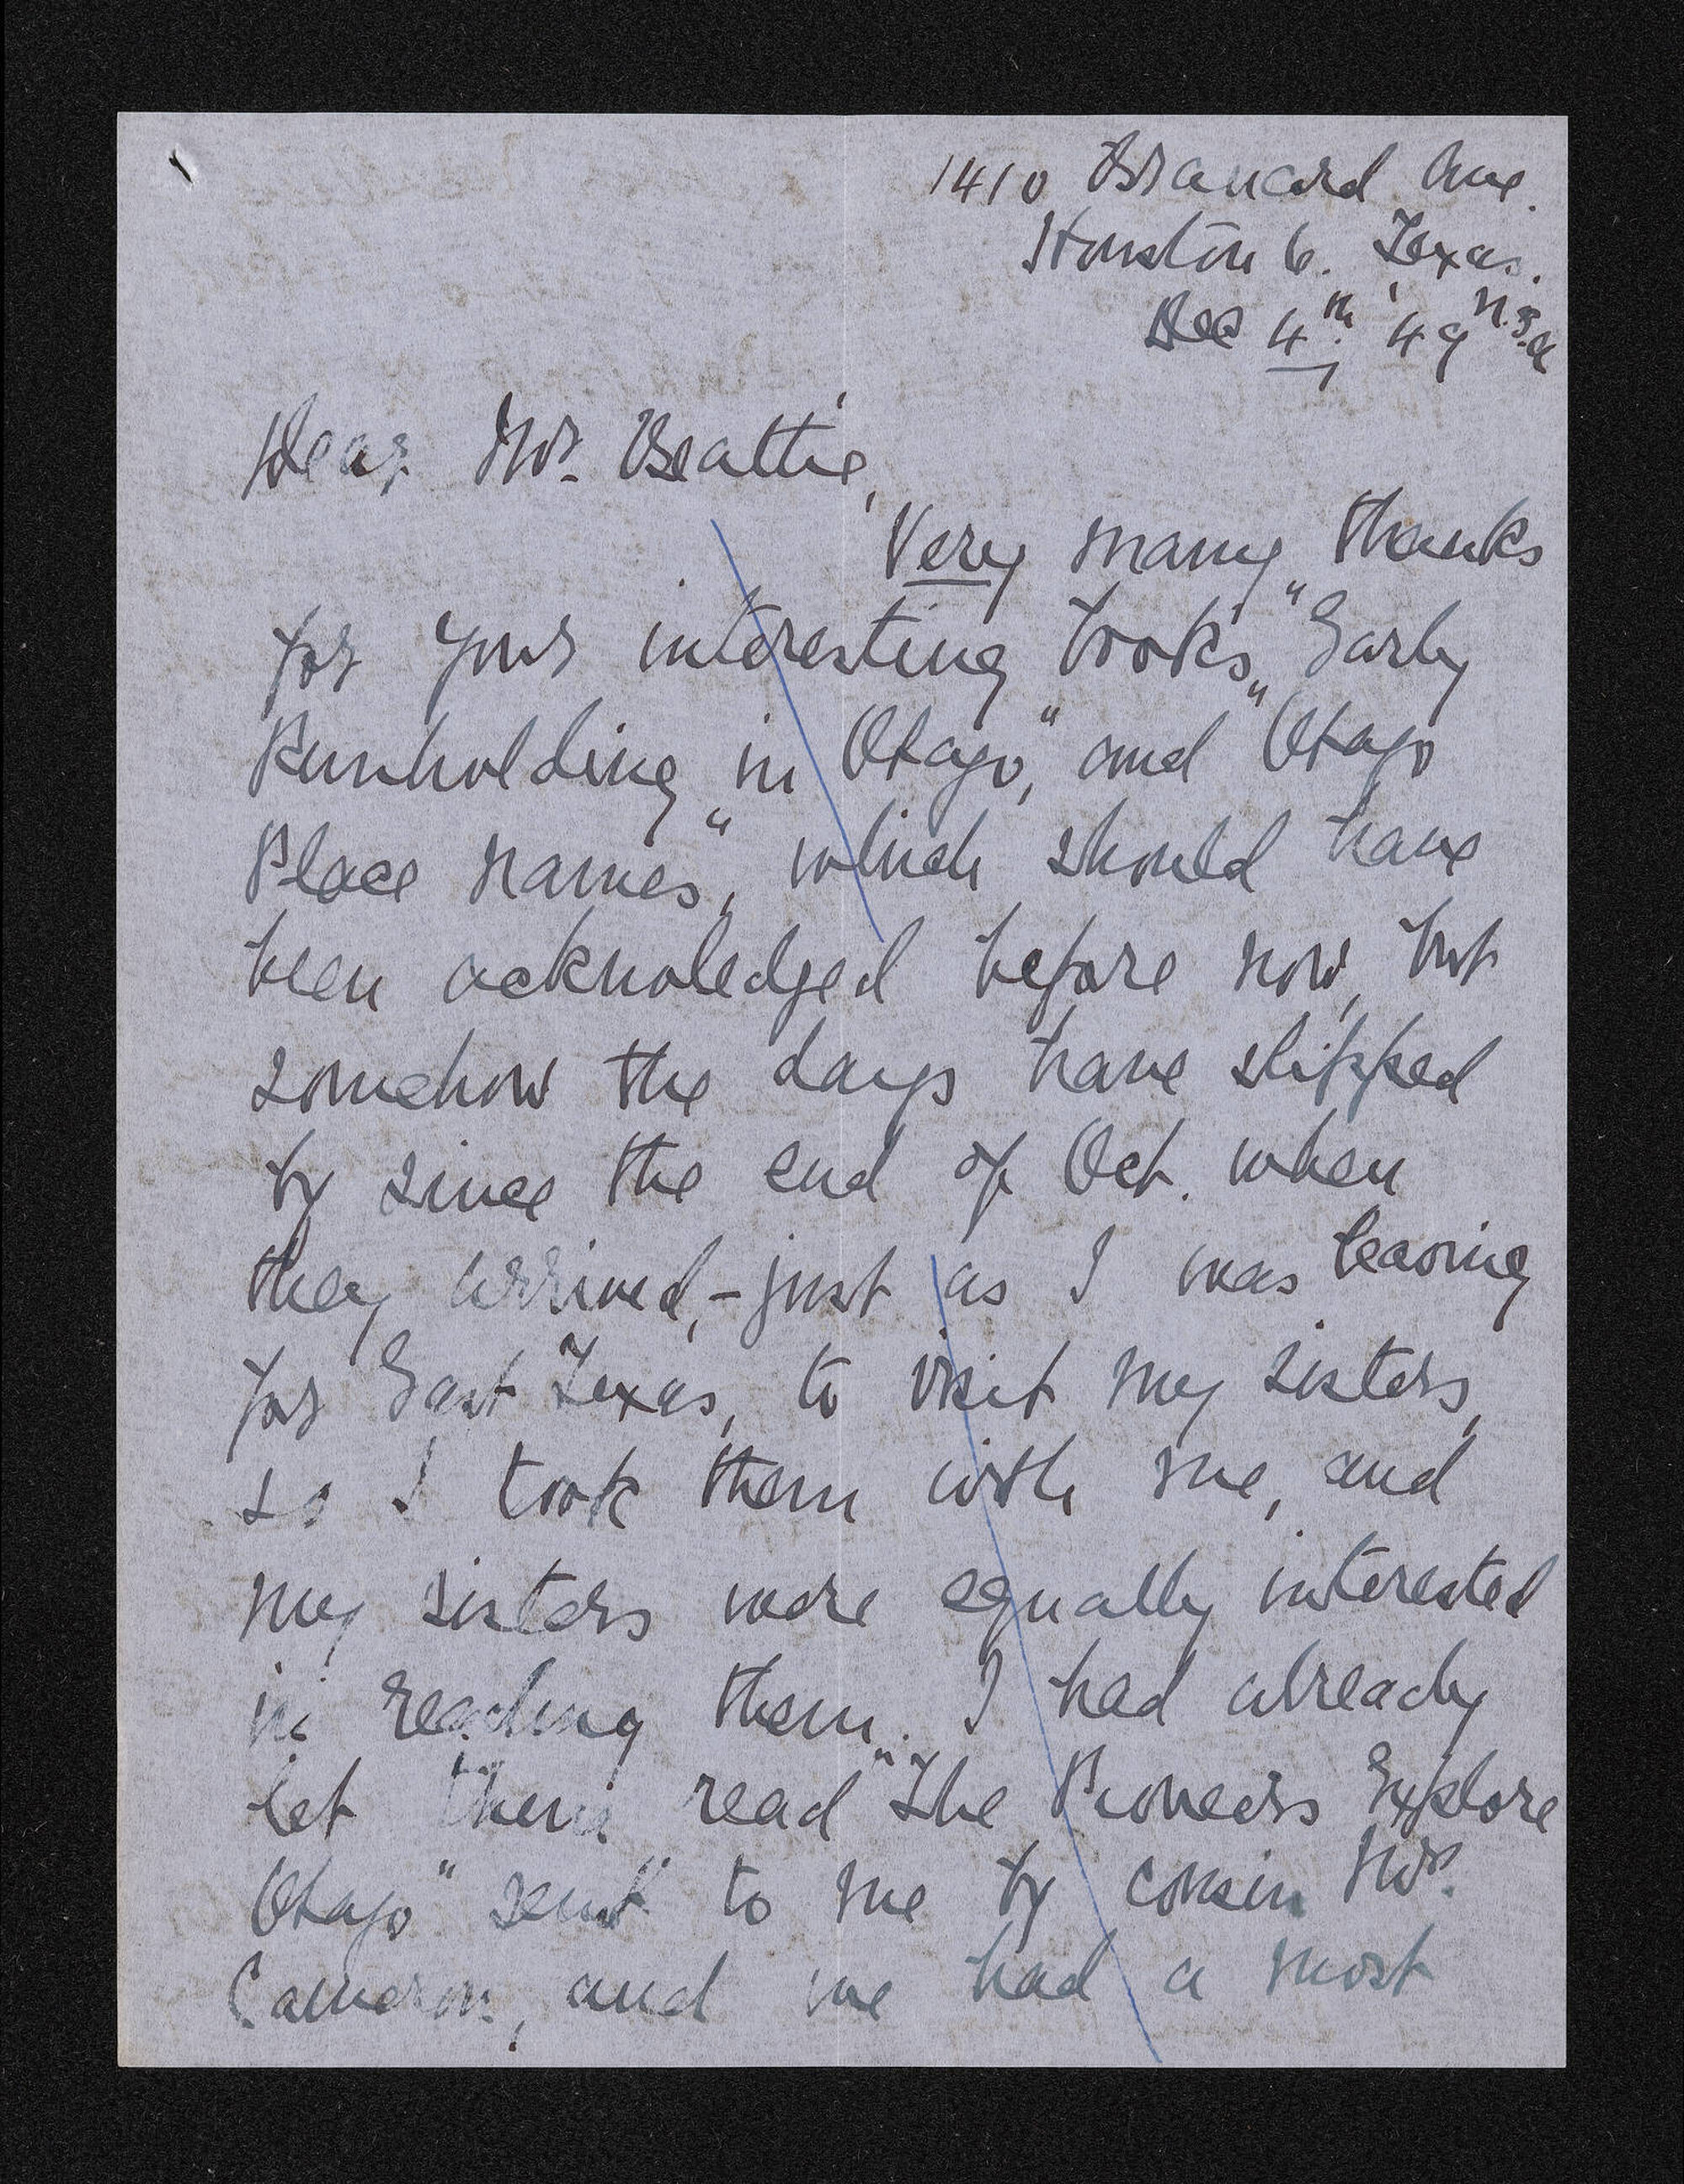 1410 Branard Ave.
Houston 6. Texas.
Dec 4th. '49 U.S.A
Dear Mr. Beattie,
Very many thanks
for your interesting books, "Early
Runholding in Otago," and "Otago
Place names", which should have
been acknoledged before now, but
somehow the days have slipped
by since the end of Oct. when
they arrived, - just as I was leaving
for East Texas, to visit my sisters,
so I took them with me, and
my sisters were equally interested
in reading them. I had already
let them read "The Pioneers Explore
Otago" sent to me by cousin Mrs.
Cameron, and we had a most